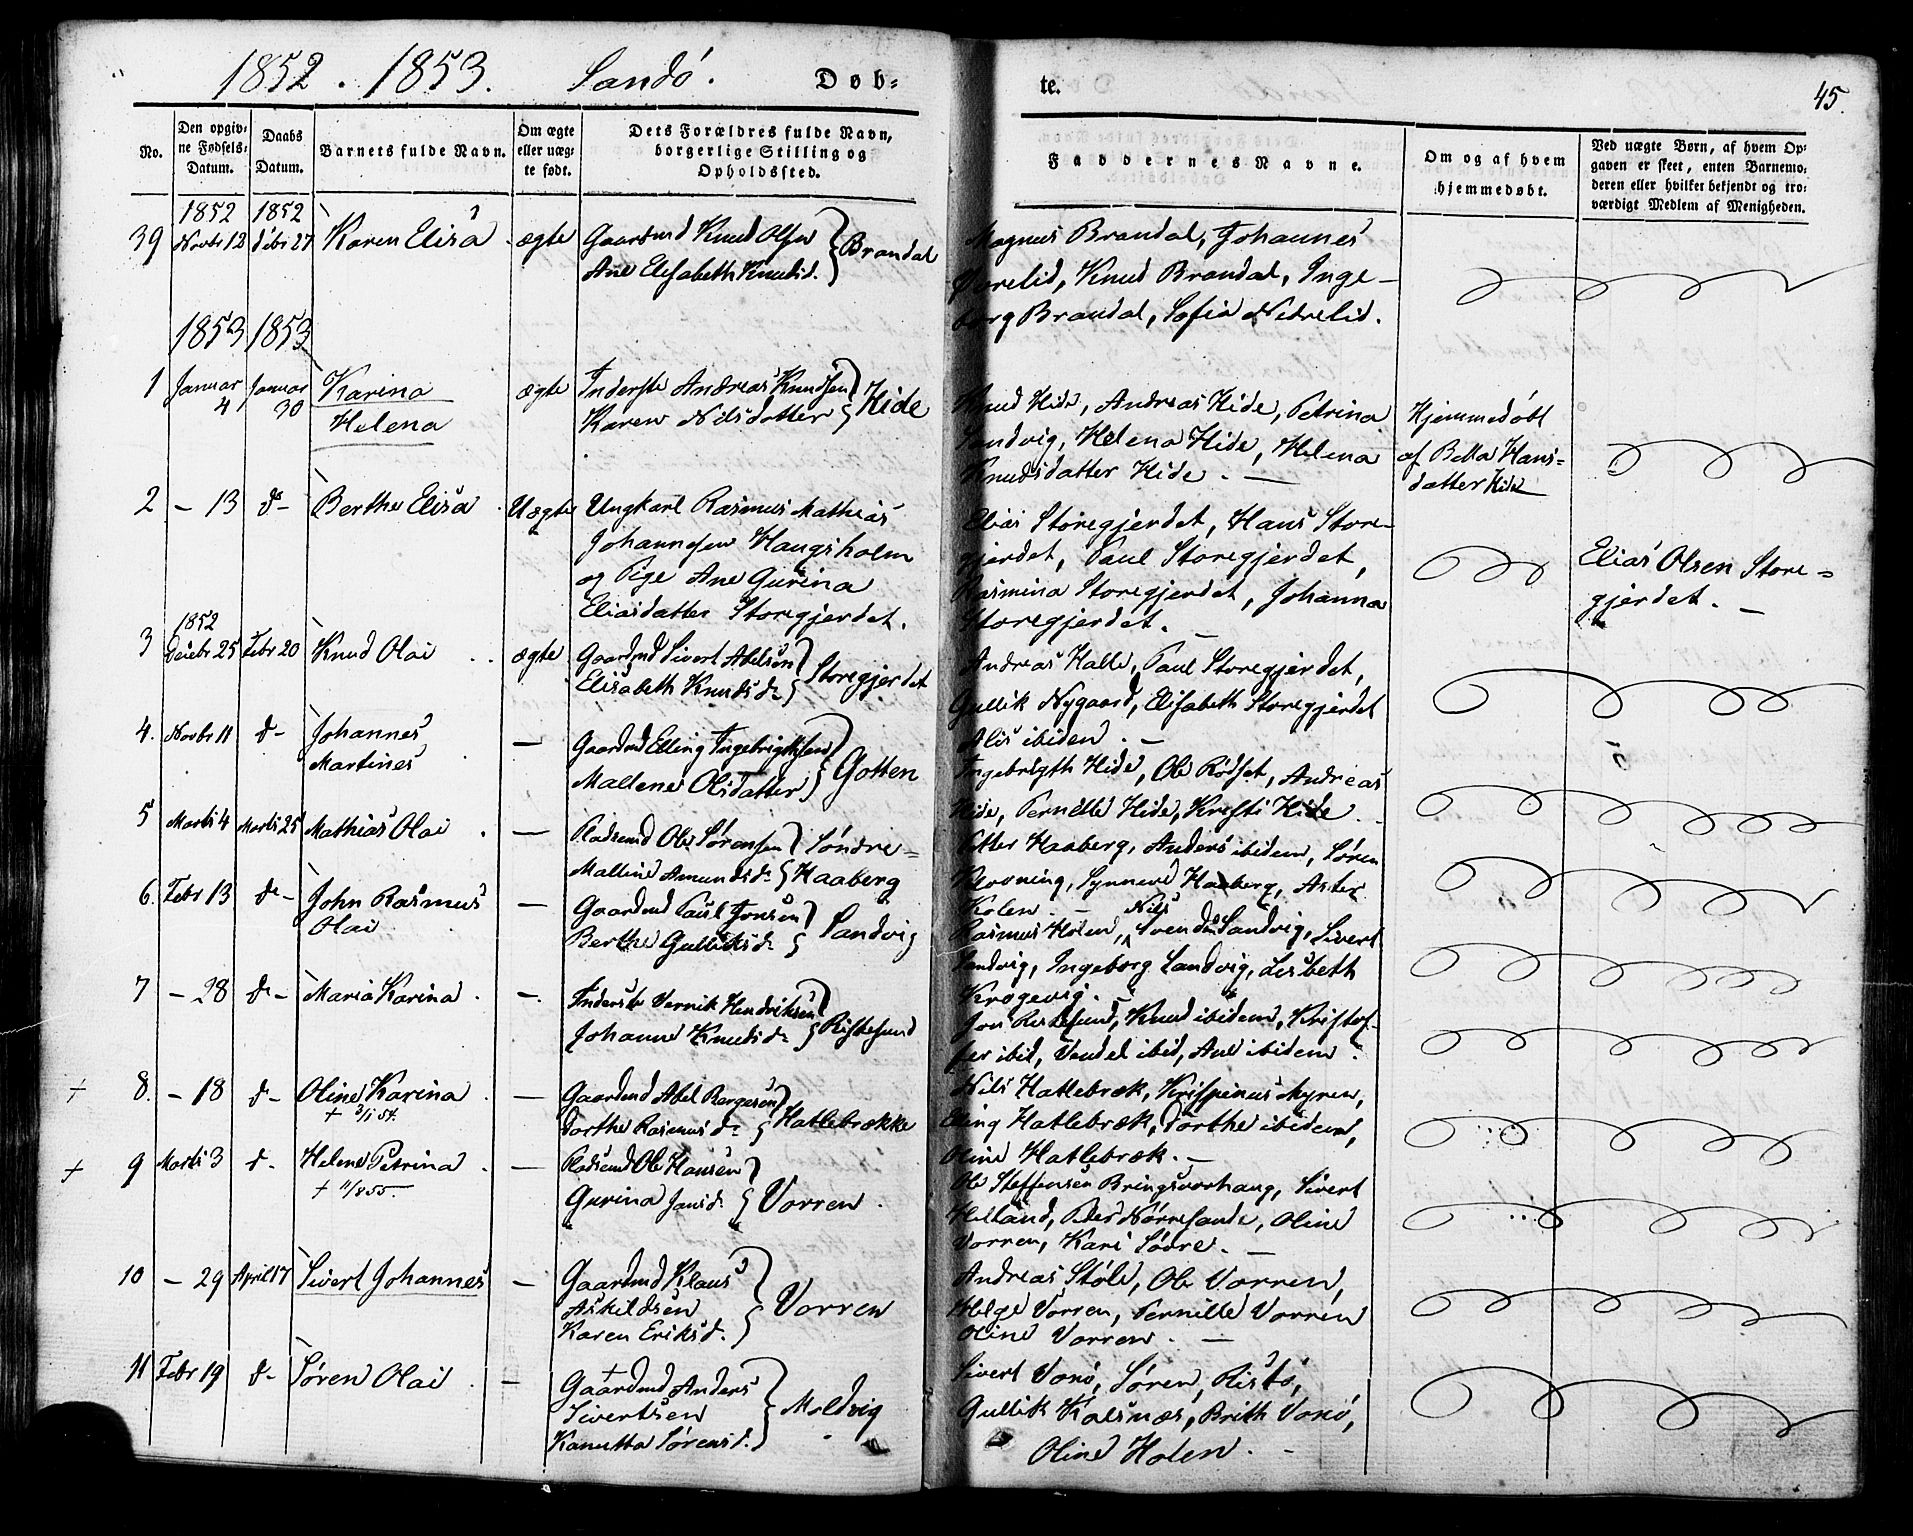 1852. 1853. Sandö. Døb=
te. 45.
No.
Den opgiv=
ne Fødsels=
Datum.
Daabs
Datum.
Barnets fulde Navn.
Om ægte
eller uæg=
te født.
Dets Forældres fulde Navn,
borgerlige Stilling og
Opholdssted.
Faddernes Navne.
Om og af hvem
hjemmedøbt.
Ved uægte Børn, af hvem Op=
gaven er skeet, enten Barnemo=
deren eller hvilket bekjendt og tro=
værdigt Medlem af Menigheden.
1852 1852
39 Novbr 12 Debr 27 Karen Elisa ægte Gaardmd Knud Olsen
Ane Elisabeth Knudsd. } Brandal
Magnus Brandal, Johannes
Knud Brandal, Inge-
borg Brandal, Sofia Nedrelid.
1853 1853
1 Januar 4 Januar 30 Karina
Helena
ægte Inderste Andreas Knudsen
Karen Nilsdatter } Hide
Knud Hide, Andreas Hide, Petrina
Sandvig, Helena Hide, Helena
Knudsdatter Hide. -
Hjemmedöbt
af Bella Hans=
datter Hide
2 - 13 d- Berthe Elisa Uægte Ungkarl Rasmus Mathias
Johannesen Haugsholm
og Pige Ane Gurina
Eliasdatter Storegjerdet.
Elias Storegjerdet, Hans Store-
gjerdet, Paul Storegjerdet,
Rasmina Storegjerdet, Johanna
Storegjerdet. -
Elias Olsen Store=
gjerdet. -
1852
3 Decbr 25 Febr 20 Knud Olai ægte Gaardmd Sivert Abelsen
Elisabeth Knudsd. } Storegjerdet
Andreas Halle, Paul Storegjerdet,
Gullik Nygaard, Elisabeth Storegjerdet
Alis ibidem. -
4. Novbr 11 d- Johannes
Martines
- Gaardmd Elling Ingebrigtsen
Mallene Olsdatter } Gotten
Ingebrigth Hide, Ole Rödset, Andreas
Hide, Pernille Hide, Kristi Hide
5 Marti 4 Marti 25 Mathias Olai - Pladsemd Ole Sörensen
Malline Amundsd. } Söndre=
Haaberg
Petter Haaberg, Anders ibidem, Sören
Klovning, Synneve Haaberg, Aster
Kolen. -
6. Febr 13 d- John Rasmus
Olai
- Gaardmd Paul Jonsen
Berthe Gulliksd. } Sandvig
Nils
Rasmus Holen, Svendsen Sandvig, Sivert
Sandvig, Ingeborg Sandvig, Lisbeth
Krogevig. -
7 - 28 d- Maria Karina. -. Inderste Vernik Hendriksen
Johanne Knudsd. } Ristesund
Jon Ristesund, Knud ibidem, Kristof-
fer ibid, Vendel ibid, Ane ibidem.
+ 8. - 18 d- Oline Karina
+ 3/1 54.
- Gaardmd Abel Bergesen
Dorthe Rasmusd. } Hatlebrække
Nils Hatlebræk, Krispinus Myren,
Elling Hatlebræk, Dorthe ibidem,
Oline Hatlebræk. -
+ 9 Marti 3 d- Helene Petrina
+ 11/8 55.
- Pladsemd Ole Hansen
Gurina Jansd. } Vorren.
Ole Steffensen Bringsvorhaug, Sivert
Helland, Peder Nörresande, Oline
Vorren, Kari Södre. -
10 - 29 April 17 Sivert Johannes - Gaardmd Klaus
Askildsen
Karen Eriksd. } Vorren
Andreas Støle, Ole Vorren,
Helge Vorren, Pernille Vorren
Oline Vorren. -
11 Febr 19 d- Søren Olai. - Gaardmd Anders
Sivertsen
Kanutta Sörensd. } Moldvig
Sivert Vorö, Sören Ristö,
Gullik Kalsnæs, Brith Vorö,
Oline Holen. -